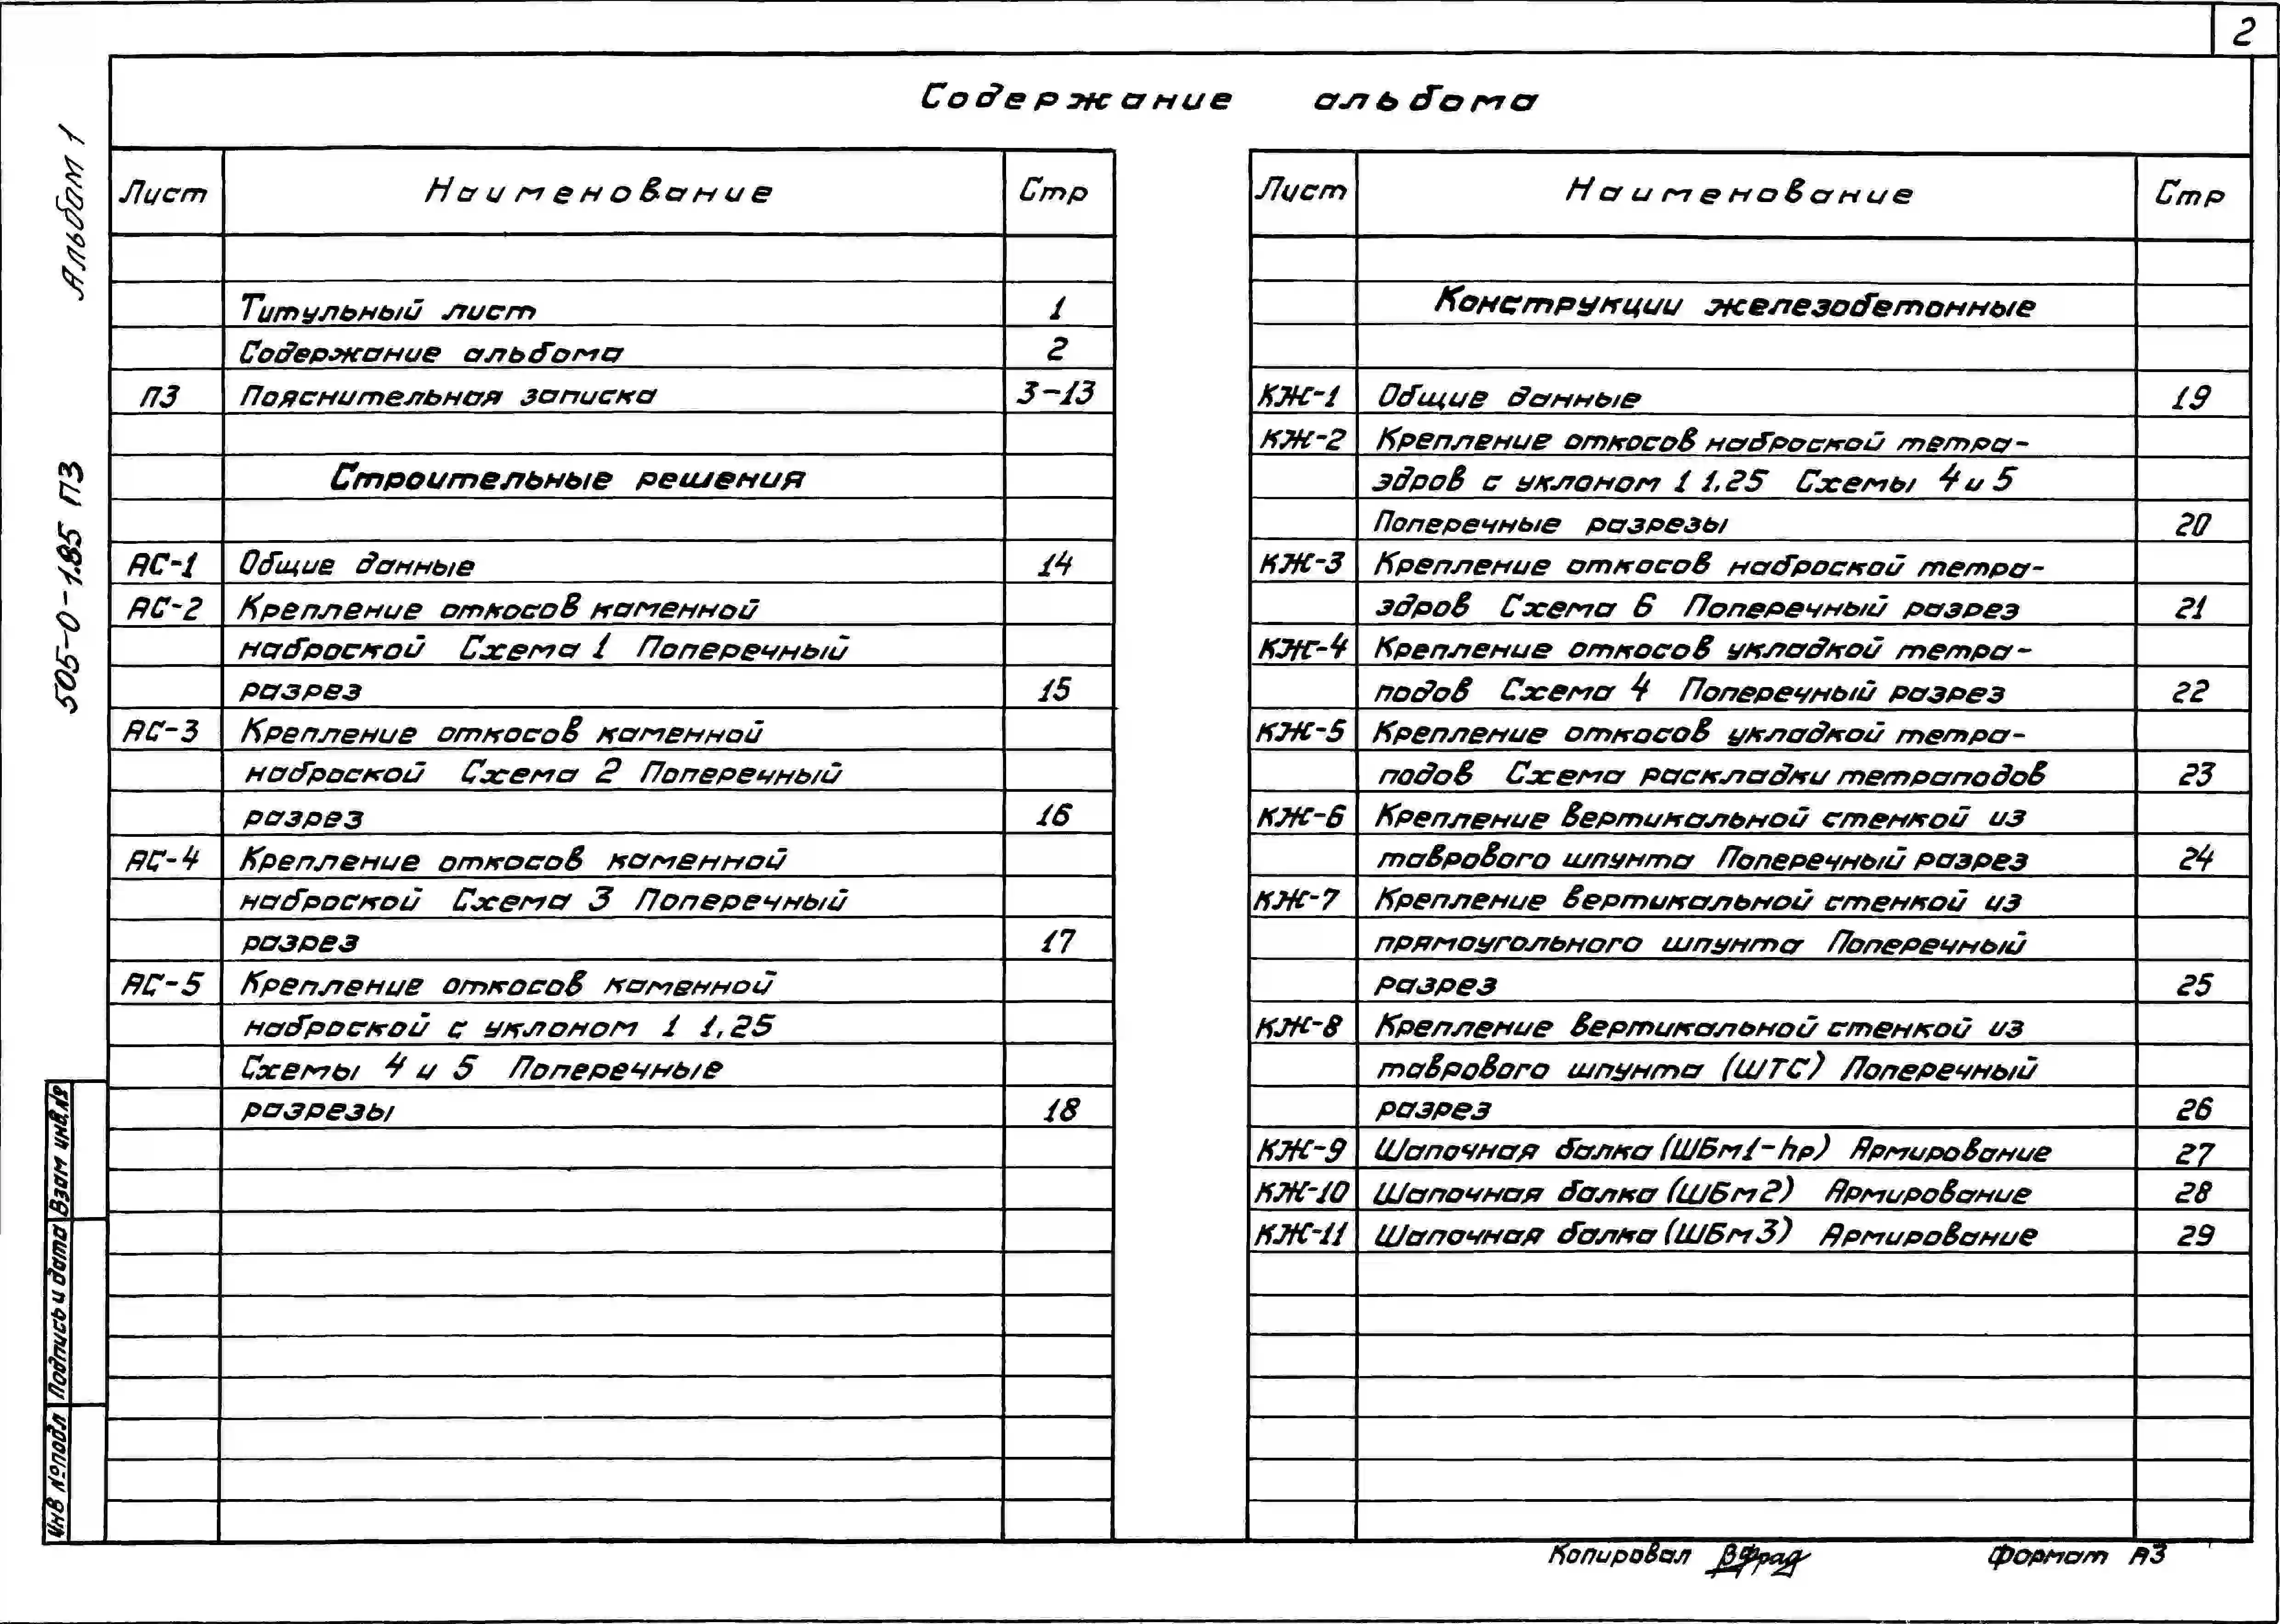 2
Содержание альбома
Альбом 1
505-0-1.85 ПЗ
Взам инв.№
Подпись и дата
Инв №подл
Лист Наименование Стр
Титульный лист 1
Содержание альбома 2
ПЗ Пояснительная записка 3-13
Строительные решения
АС-1 Общие данные 14
АС-2 Крепление откосов каменной
наброской Схема 1 Поперечный
разрез 15
АС-3 Крепление откосов каменной
наброской Схема 2 Поперечный
разрез 16
АС-4 Крепление откосов каменной
наброской Схема 3 Поперечный
разрез 17
АС-5 Крепление откосов каменной
наброской с уклоном 1 1,25
Схемы 4 и 5 Поперечные
разрезы 18
Лист Наименование Стр
Конструкции железобетонные
КЖ-1 Общие данные 19
КЖ-2 Крепление откосов наброской тетра-
эдров с уклоном 1 1.25 Схемы 4 и 5
Поперечные разрезы 20
КЖ-3 Крепление откосов наброской тетра-
эдров Схема 6 Поперечный разрез 21
КЖ-4 Крепление откосов укладкой тетра-
подов Схема 4 Поперечный разрез 22
КЖ-5 Крепление откосов укладкой тетра-
подов Схема раскладки тетраподов 23
КЖ-6 Крепление вертикальной стенкой из
таврового шпунта Поперечный разрез 24
КЖ-7 Крепление вертикальной стенкой из
прямоугольного шпунта Поперечный
разрез 25
КЖ-8 Крепление вертикальной стенкой из
таврового шпунта (ШТС) Поперечный
разрез 26
КЖ-9 Шапочная балка (ШБм1-hр) Армирование 27
КЖ-10 Шапочная балка (ШБм2) Армирование 28
КЖ-11 Шапочная балка (ШБм3) Армирование 29
Копировал Формат А3